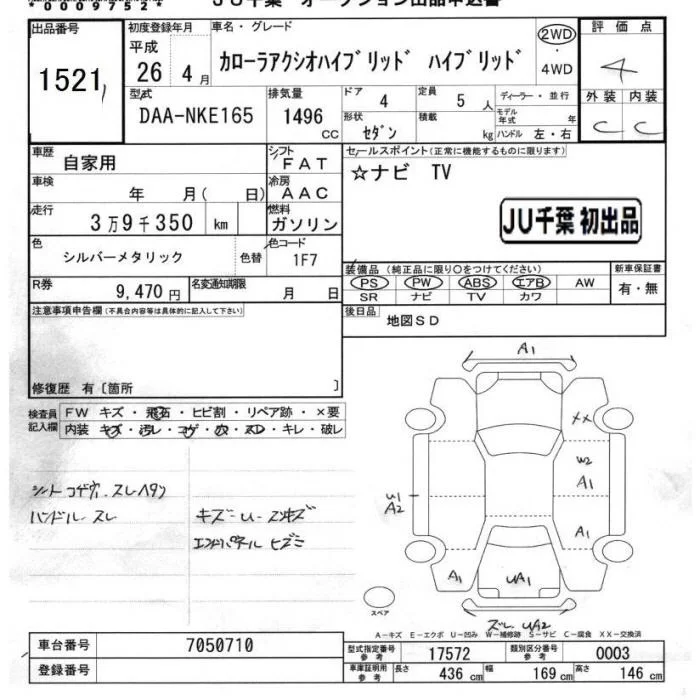 *00097524*
JU千葉 オークション出品申込書
出品番号
1521
初度登録年月
平成
26 4月
車名・グレード
カローラアクシオハイブリッド ハイブリッド
2WD
・
4WD
評価点
4
外装 内装
C C
型式
DAA-NKE165
排気量
1496
CC
ドア 4
定員 5人
形状
セダン
積載
kg
ディーラー・並行
モデル年式 年
ハンドル 左・右
車歴
自家用
シフト
FAT
セールスポイント(正常に機能するものに限ります)
☆ナビ TV
JU千葉 初出品
車検
年 月( 日)
冷房
AAC
走行
3万9千350 km
燃料
ガソリン
色
シルバーメタリック
色替
色コード
1F7
装備品(純正品に限り〇をつけてください)
PS PW ABS エアB AW
SR ナビ TV カワ
新車保証書
有・無
R券
9,470円
名変通知期限
月 日
後日品
地図SD
注意事項申告欄(不具合内容等は具体的に記入して下さい)
修復歴 有〔箇所 〕
検査員
記入欄
FW キズ・飛石・ヒビ割・リペア跡・×要
内装・キズ・汚レ・コゲ・穴・スレ・キレ・破レ
シートコゲ穴、スレヘタリ
ハンドル スレ
キズ〜U〜エクキズ
エンドパネル ヒズミ
A1
XX
W2
A1
U1
A2
A1
A1
UA1
スペア
ズレ UA2
A−キズ E−エクボ U−凹み W−補修跡 S−サビ C−腐食 XX−交換済
車台番号
7050710
登録番号
型式指定番号
参考
17572
類別区分番号
参考
0003
車庫証明用
参考
長さ 436 cm
幅 169 cm
高さ 146 cm